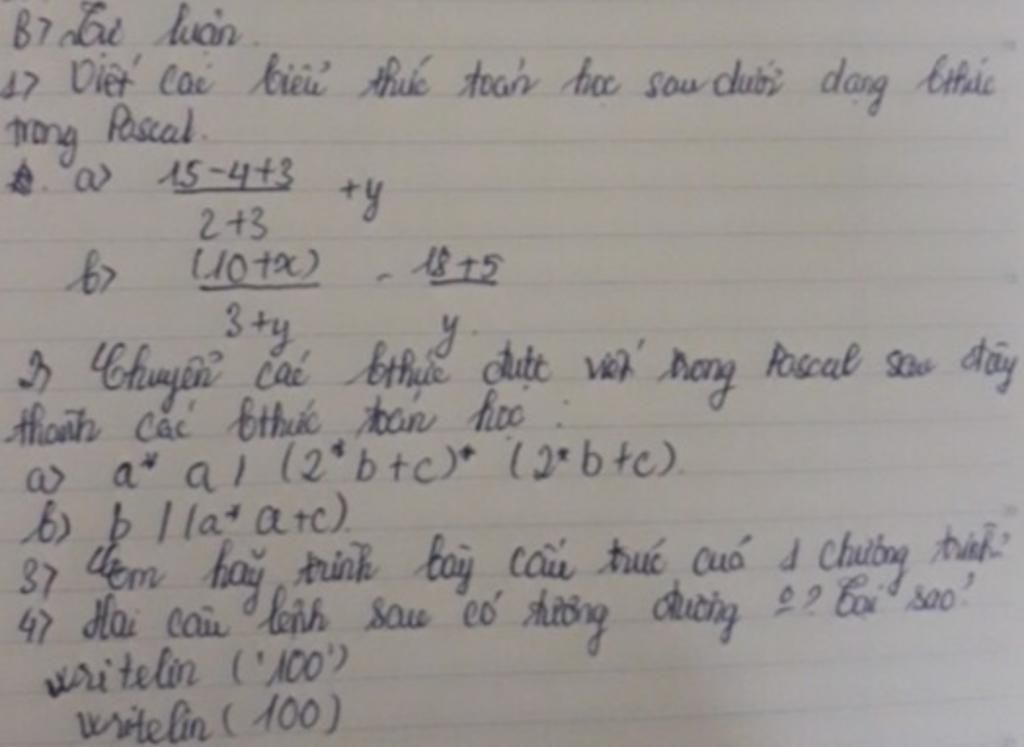 B> Tự luận.
1> Viết các biểu thức toán học sau dưới dạng bthức
trong Pascal.
a> 15-4+3 +y
2+3
b> (10+x) - 18+5
3+y y.
2> Chuyển các bthức được viết trong Pascal sau đây
thành các bthức toán học :
a> a* a / (2*b+c)* (2*b+c).
b) b / (a* a+c).
3> Em hãy trình bày cấu trúc của 1 chương trình?
4> Hai câu lệnh sau có tương đương o? Tại sao?
writelin ('100')
writelin (100)